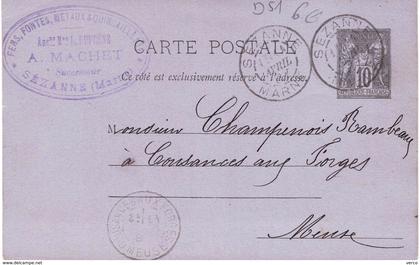 FERS, FONTES, MÉTAUX & QUINCAILLERIE
A. MACHET
Successeur
SÉZANNE (Marne)
DS1 6€
CARTE POSTALE
Ce côté est exclusivement réservé à l'adresse.
SEZANNE
AVRIL
MARNE
SEZANNE
10
REPUBLIQUE FRANÇAISE
Monsieur Champenois Rambeaux
à Cousances aux Forges
Meuse
COUSANCES-AUX-FORGES
MEUSE